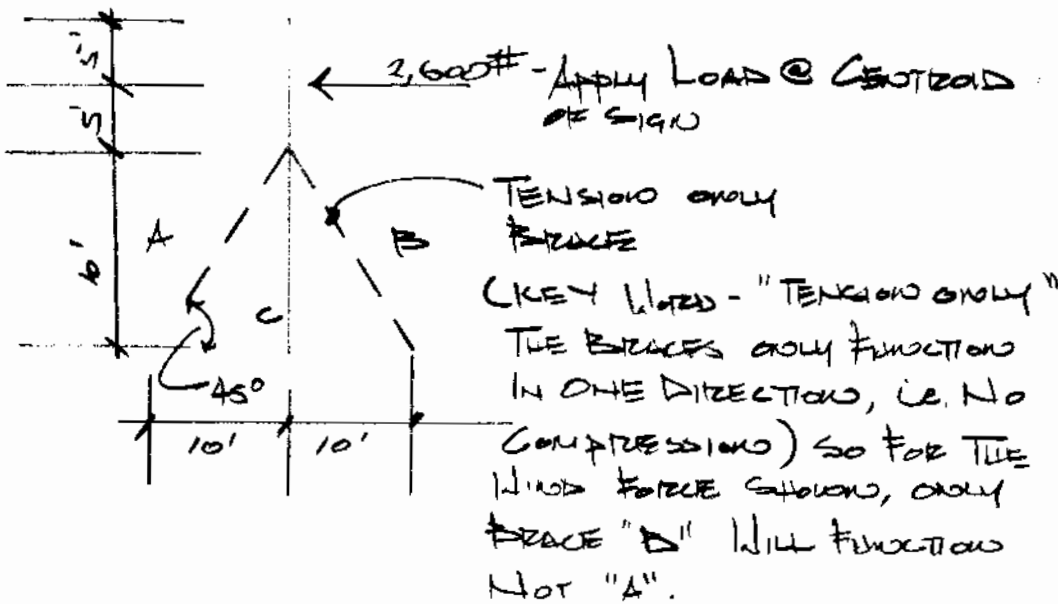 5'
2,600# - APPLY LOAD @ CENTROID
OF SIGN
5'
TENSION ONLY
BRACE
A
B
10'
(KEY WORD - "TENSION ONLY"
C
THE BRACES ONLY FUNCTION
IN ONE DIRECTION, i.e. NO
45°
10' 10'
COMPRESSION) SO FOR THE
WIND FORCE SHOWN, ONLY
BRACE "B" WILL FUNCTION
NOT "A".